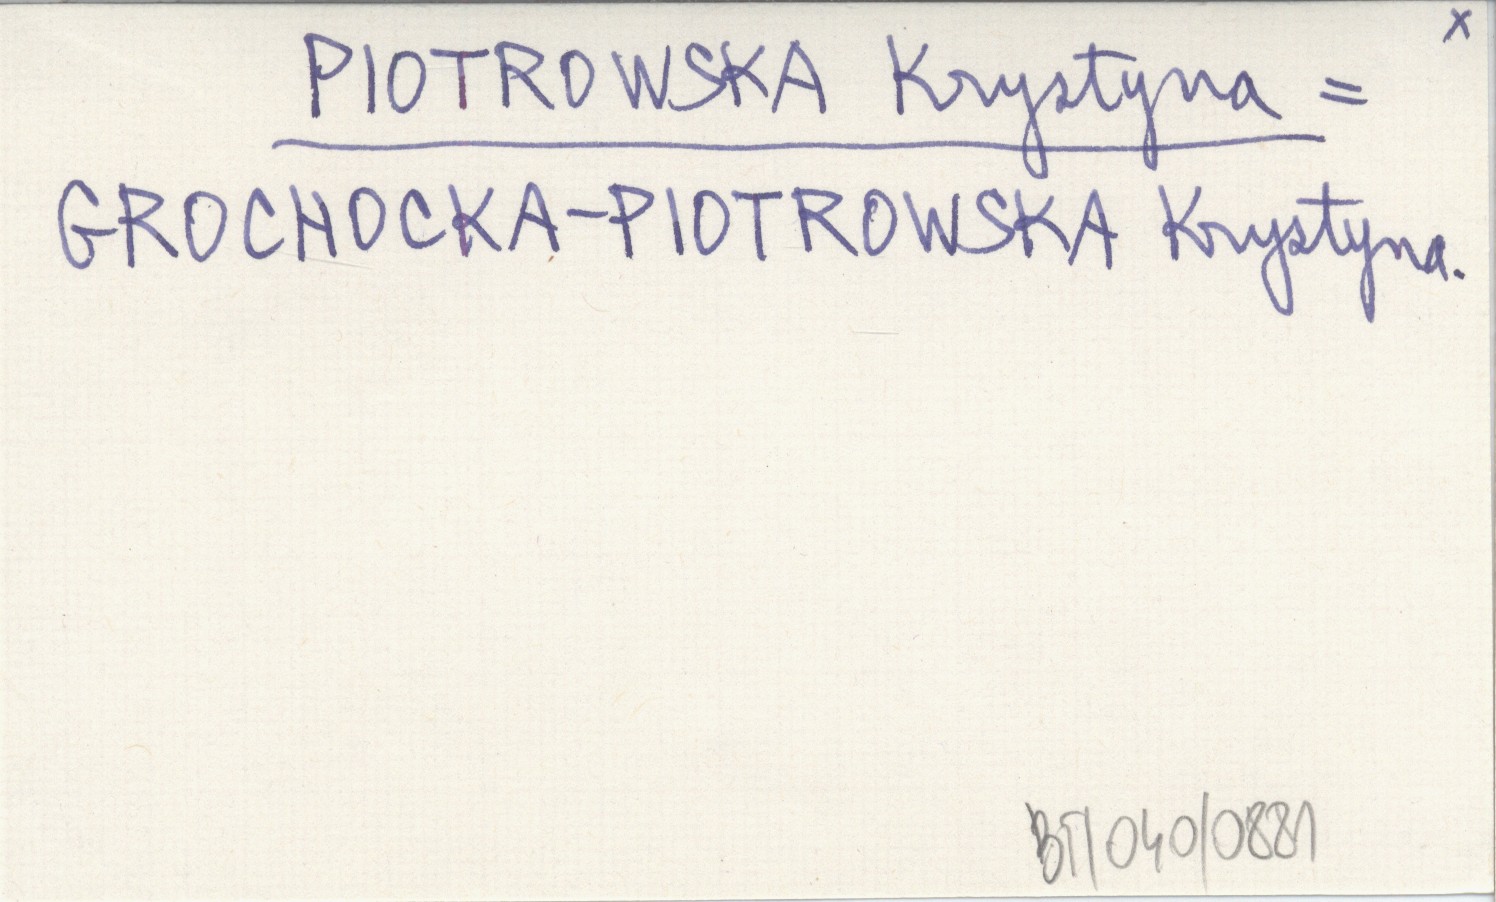 x
PIOTROWSKA Krystyna =
GROCHOCKA-PIOTROWSKA Krystyna.
BT/040/0881